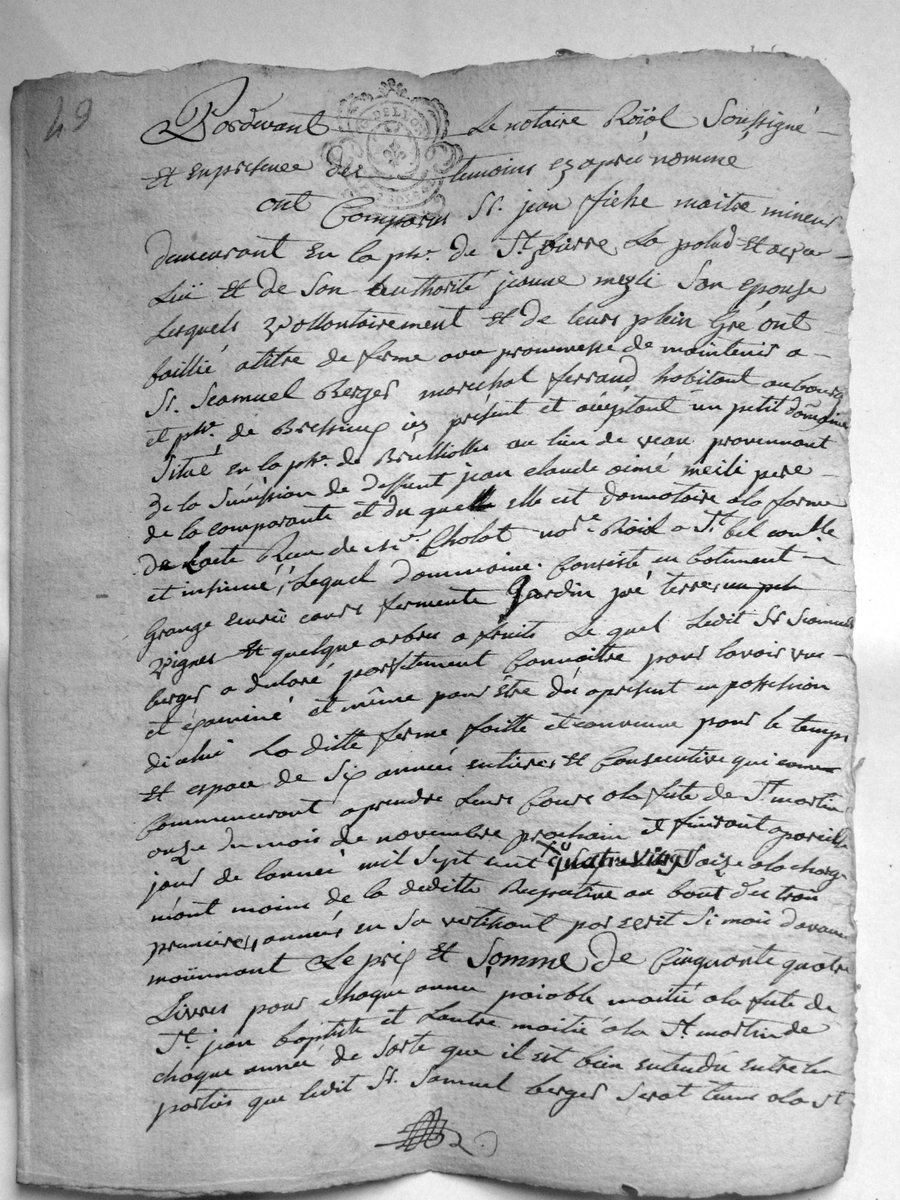 49
Pardevant Le notaire Roïal Soussigné
et en presence des temoins cy apres nommé
ont Comparus Sr. jean fiche maitre mineur
demeurant En la psse. de St. pierre La palud Et avec
Lui Et de Son authorité jeanne mezli Son epouse
Lesquels vollontairement Et de leurs plein Gré ont
baillié atitre de ferme avec promesse de maintenir a
Sr. Seamuel Berger marechal ferrand habitant au bourg
et psse. de Bressieux icy présent et acceptant un petit domaine
Situé en la psse. de Brussiolles au lieu de veau provennant
de la Sucession de deffunt jean claude aimé meili pere
de la comparante et du quelle elle est donnotaire a la forme
de Lacte Recu de Me. Cholat nore. Roïal a St. bel controlle
et insinué, Lequel dommaine Consiste en batiment
Grange Ecurie cours fermente Jardin pré terres un peu
vignes Et quelque arbres a fruits Le quel Ledit Sr Seamuel
berger a declaré parfaitement Connoitre pour lavoir vue
et éxaminé et même pour être du apresent en possession
dicelui La ditte ferme faitte et convenue pour le temps
Et espace de Six année entieres Et Consecutive qui
Commenceront aprendre Leurs Cours a la fete de St. martin
onze du mois de novembre prochain et finiront apareille
jour de lannée mil Sept cent quatre vingt Saize a la charge
néant moins de la deditte Respective au bout des trois
premieres années en Sa vertissant par ecrit Si mois davance
moïennant Le prix Et Somme de Cinquante quatre
Livres pour chaque année paiable moitié a la fete de
St. jean baptiste et Lautre moitié a la St. martin de
chaque année de Sorte que il est bien entendu entre les
parties que ledit Sr. Samuel berger Serat tenu a la St